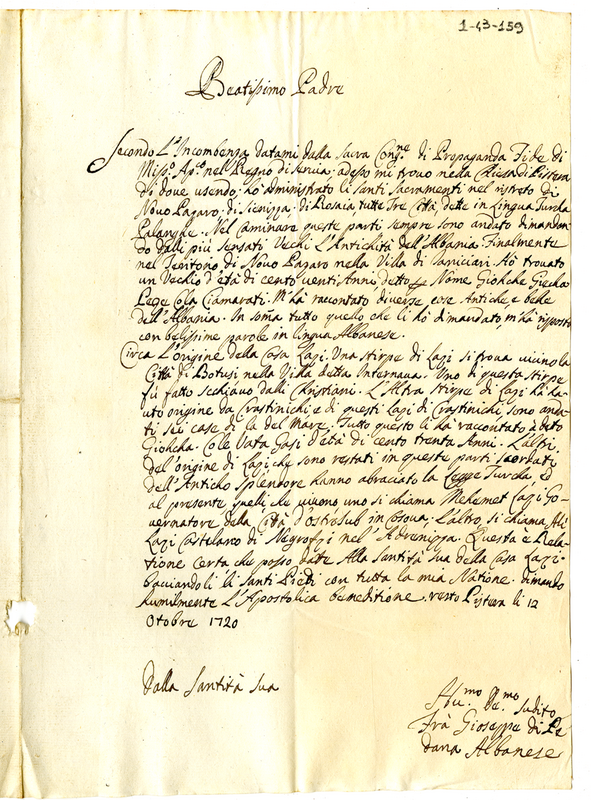 1-43-159
Beatissimo Padre
Secondo L'a Incombenza datami dalla Sacra Cong.ne di Propaganda Fide di
Miss.o Ap.co nel Regno di Servia, adesso mi trovo nella Chiesa di
di dove usendo, hò administrato li Santi Sacramenti nel ristreto di
Novo Pazaro, di Sienizza, di Bosnia tutte Tre Città, dette in Lingua Turcha
Palanghe. Nel caminare queste parti sempre sono andato dimandan
do dalli più sensati Vechi L'Antichità dell'Albania. Finalmente
nel Teritorio di Novo Pazaro nella Villa di hò trovato
un Vechio d'età di cento venti Anni, detto p Nome Giohcha
Cola M'hà racontato diverse cose Antiche, e belle
dell'Albania. In soma tutto quello che li hò dimandato, m'hà risposto
con belissime parole in lingua Albanese.
Circa L'origine della Casa Lazi. Una stirpe di Lazi si trova vicino la
Città di nella Villa detta Internava. Uno di questa stirpe
fù fatto schiavo dalli Christiani. L'Altra stirpe di Lazi hà ha-
uto origine da Crastinichi, e di questi Lazi di Crastinichi sono anda
ti sei case di la del Mare. Tutto questo li hà racontato à deto
Giohcha. Cole Vata Gasi d'età di cento trenta Anni. L'altri
del'origine di Lazi, che sono restati in queste parti scordati
dell'Anticho splendore hanno abraciato la Legge Turcha, Ed
al presente quelli che vivono uno si chiama Mehemet Lazi Go-
vernatore della Città d'ostrosub in Cosova; L'altro si chiama Ali
Lazi Castelano di nel Questa è Rela-
tione certa che posso dare Alla Santità sua della Casa Lazi.
baciandoli li Santi Piedi con tutta la mia Natione. dimando
humilmente L'Apostolica beneditione. resto li 12
Otobre 1720
Dalla Santità Sua
mo mo Sudito
Frà Gioseppe di Pe
dana Albanese